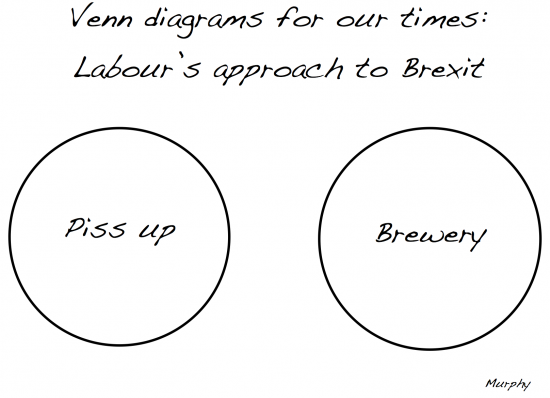 Venn diagrams for our times:
Labour's approach to Brexit
Piss up
Brewery
Murphy